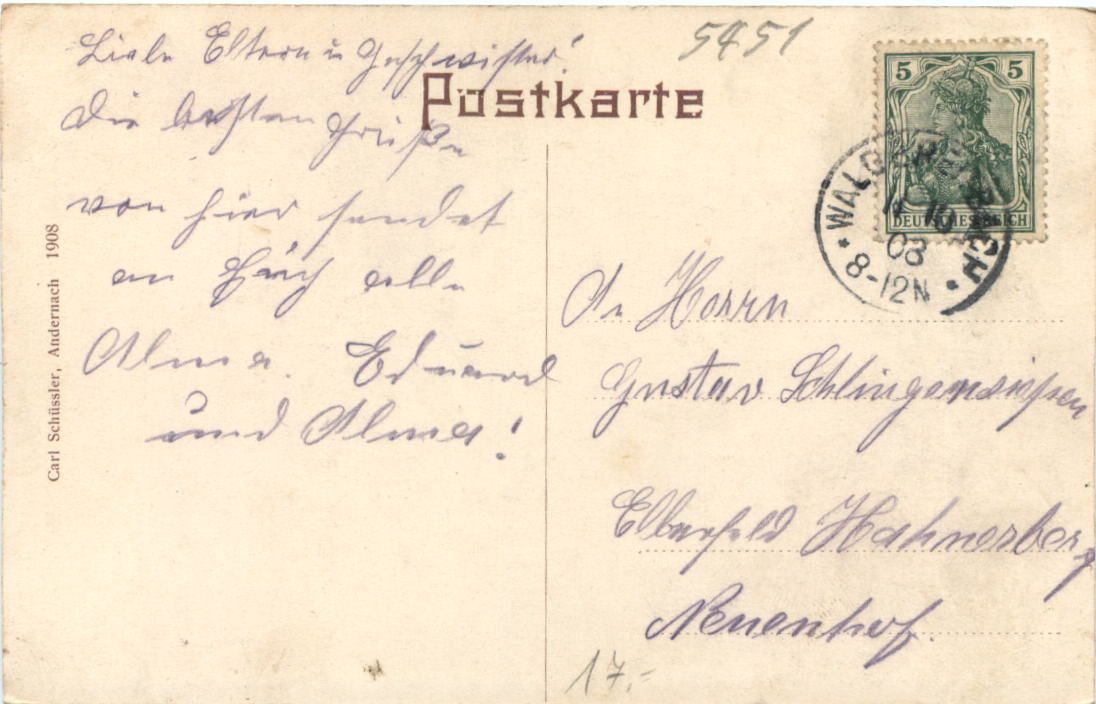 5451
Postkarte
Liebe Eltern u Geschwister!
Die besten Grüße
von hier sendet
an Euch alle
Alma. Eduard
und Alma!
5 5
DEUTSCHES REICH
* WALD
03
8-12N *
An Herrn
Gustav Schlingensiepen
Elberfeld Hahnerberg
Neuenhof.
17.-
Carl Schüssler, Andernach 1908